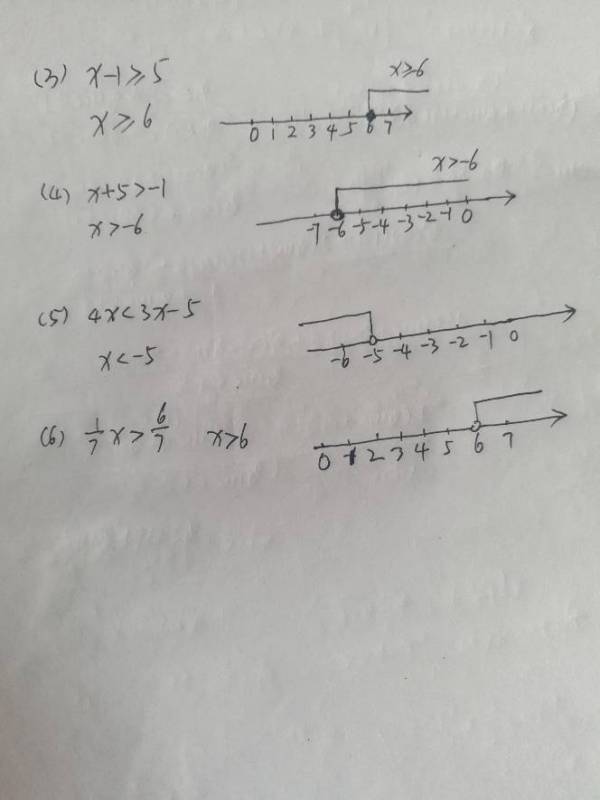 (3) x-1≥5
x≥6
x≥6
0 1 2 3 4 5 6 7
(4) x+5>-1
x>-6
x>-6
-7 -6 -5 -4 -3 -2 -1 0
(5) 4x<3x-5
x<-5
-6 -5 -4 -3 -2 -1 0
(6) 1/7 x > 6/7 x>6
0 1 2 3 4 5 6 7